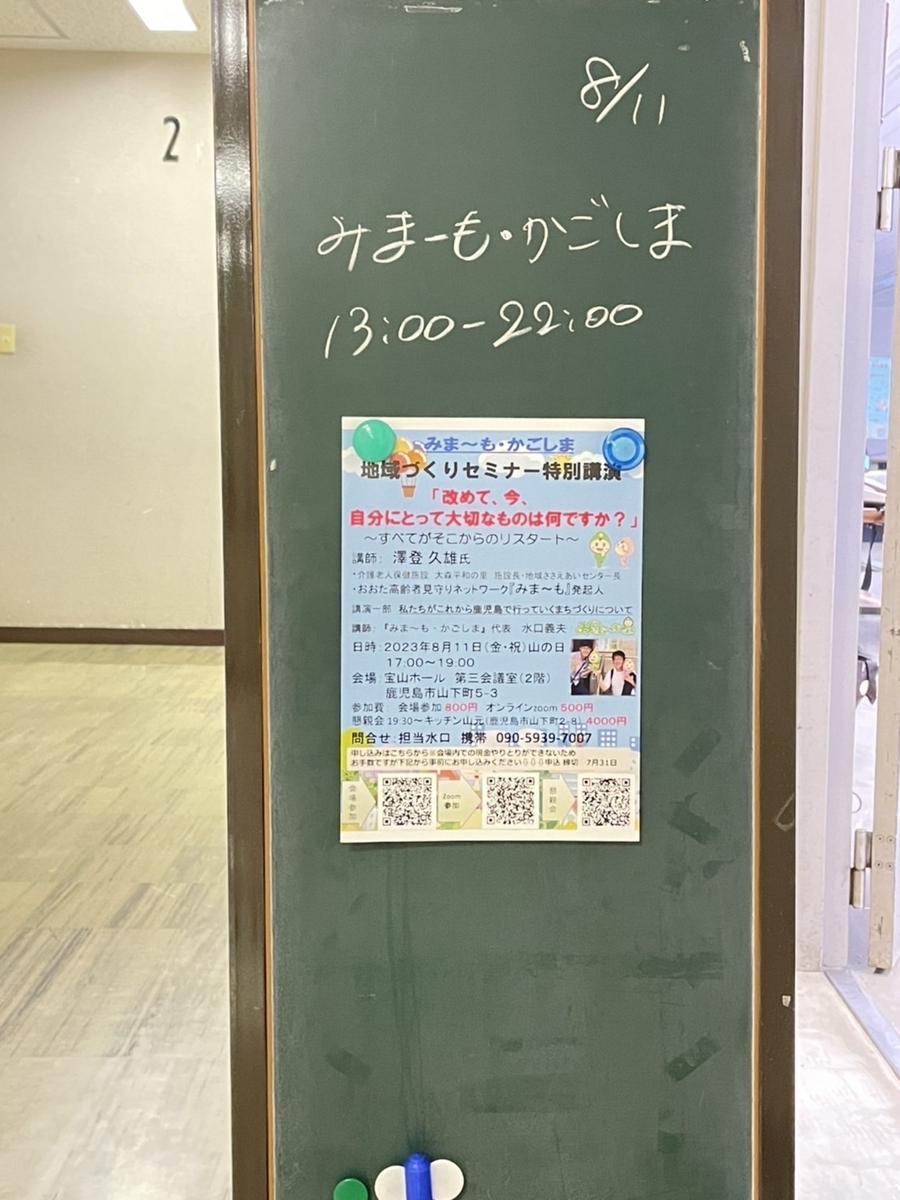 2
8/11
みまーも・かごしま
13:00-22:00
みま~も・かごしま
地域づくりセミナー特別講演
「改めて、今、
自分にとって大切なものは何ですか?」
~すべてがそこからのリスタート~
講師: 澤登 久雄氏
・介護老人保健施設 大森平和の里 施設長・地域ささえあいセンター長
・おおた高齢者見守りネットワーク『みま~も』発起人
講演一部 私たちがこれから鹿児島で行っていくまちづくりについて
講師:『みま~も・かごしま』代表 水口義夫
日時:2023年8月11日(金・祝)山の日
17:00~19:00
会場:宝山ホール 第三会議室(2階)
鹿児島市山下町5-3
参加費: 会場参加 800円 オンラインzoom 500円
懇親会 19:30~キッチン山元(鹿児島市山下町2-8) 4000円
問合せ:担当水口 携帯 090-5939-7007
申し込みはこちらから※会場内での現金やりとりができないため
お手数ですが下記から事前にお申し込みください⇩⇩⇩申込 締切 7月31日
会場参加
Zoom
参加
懇親会